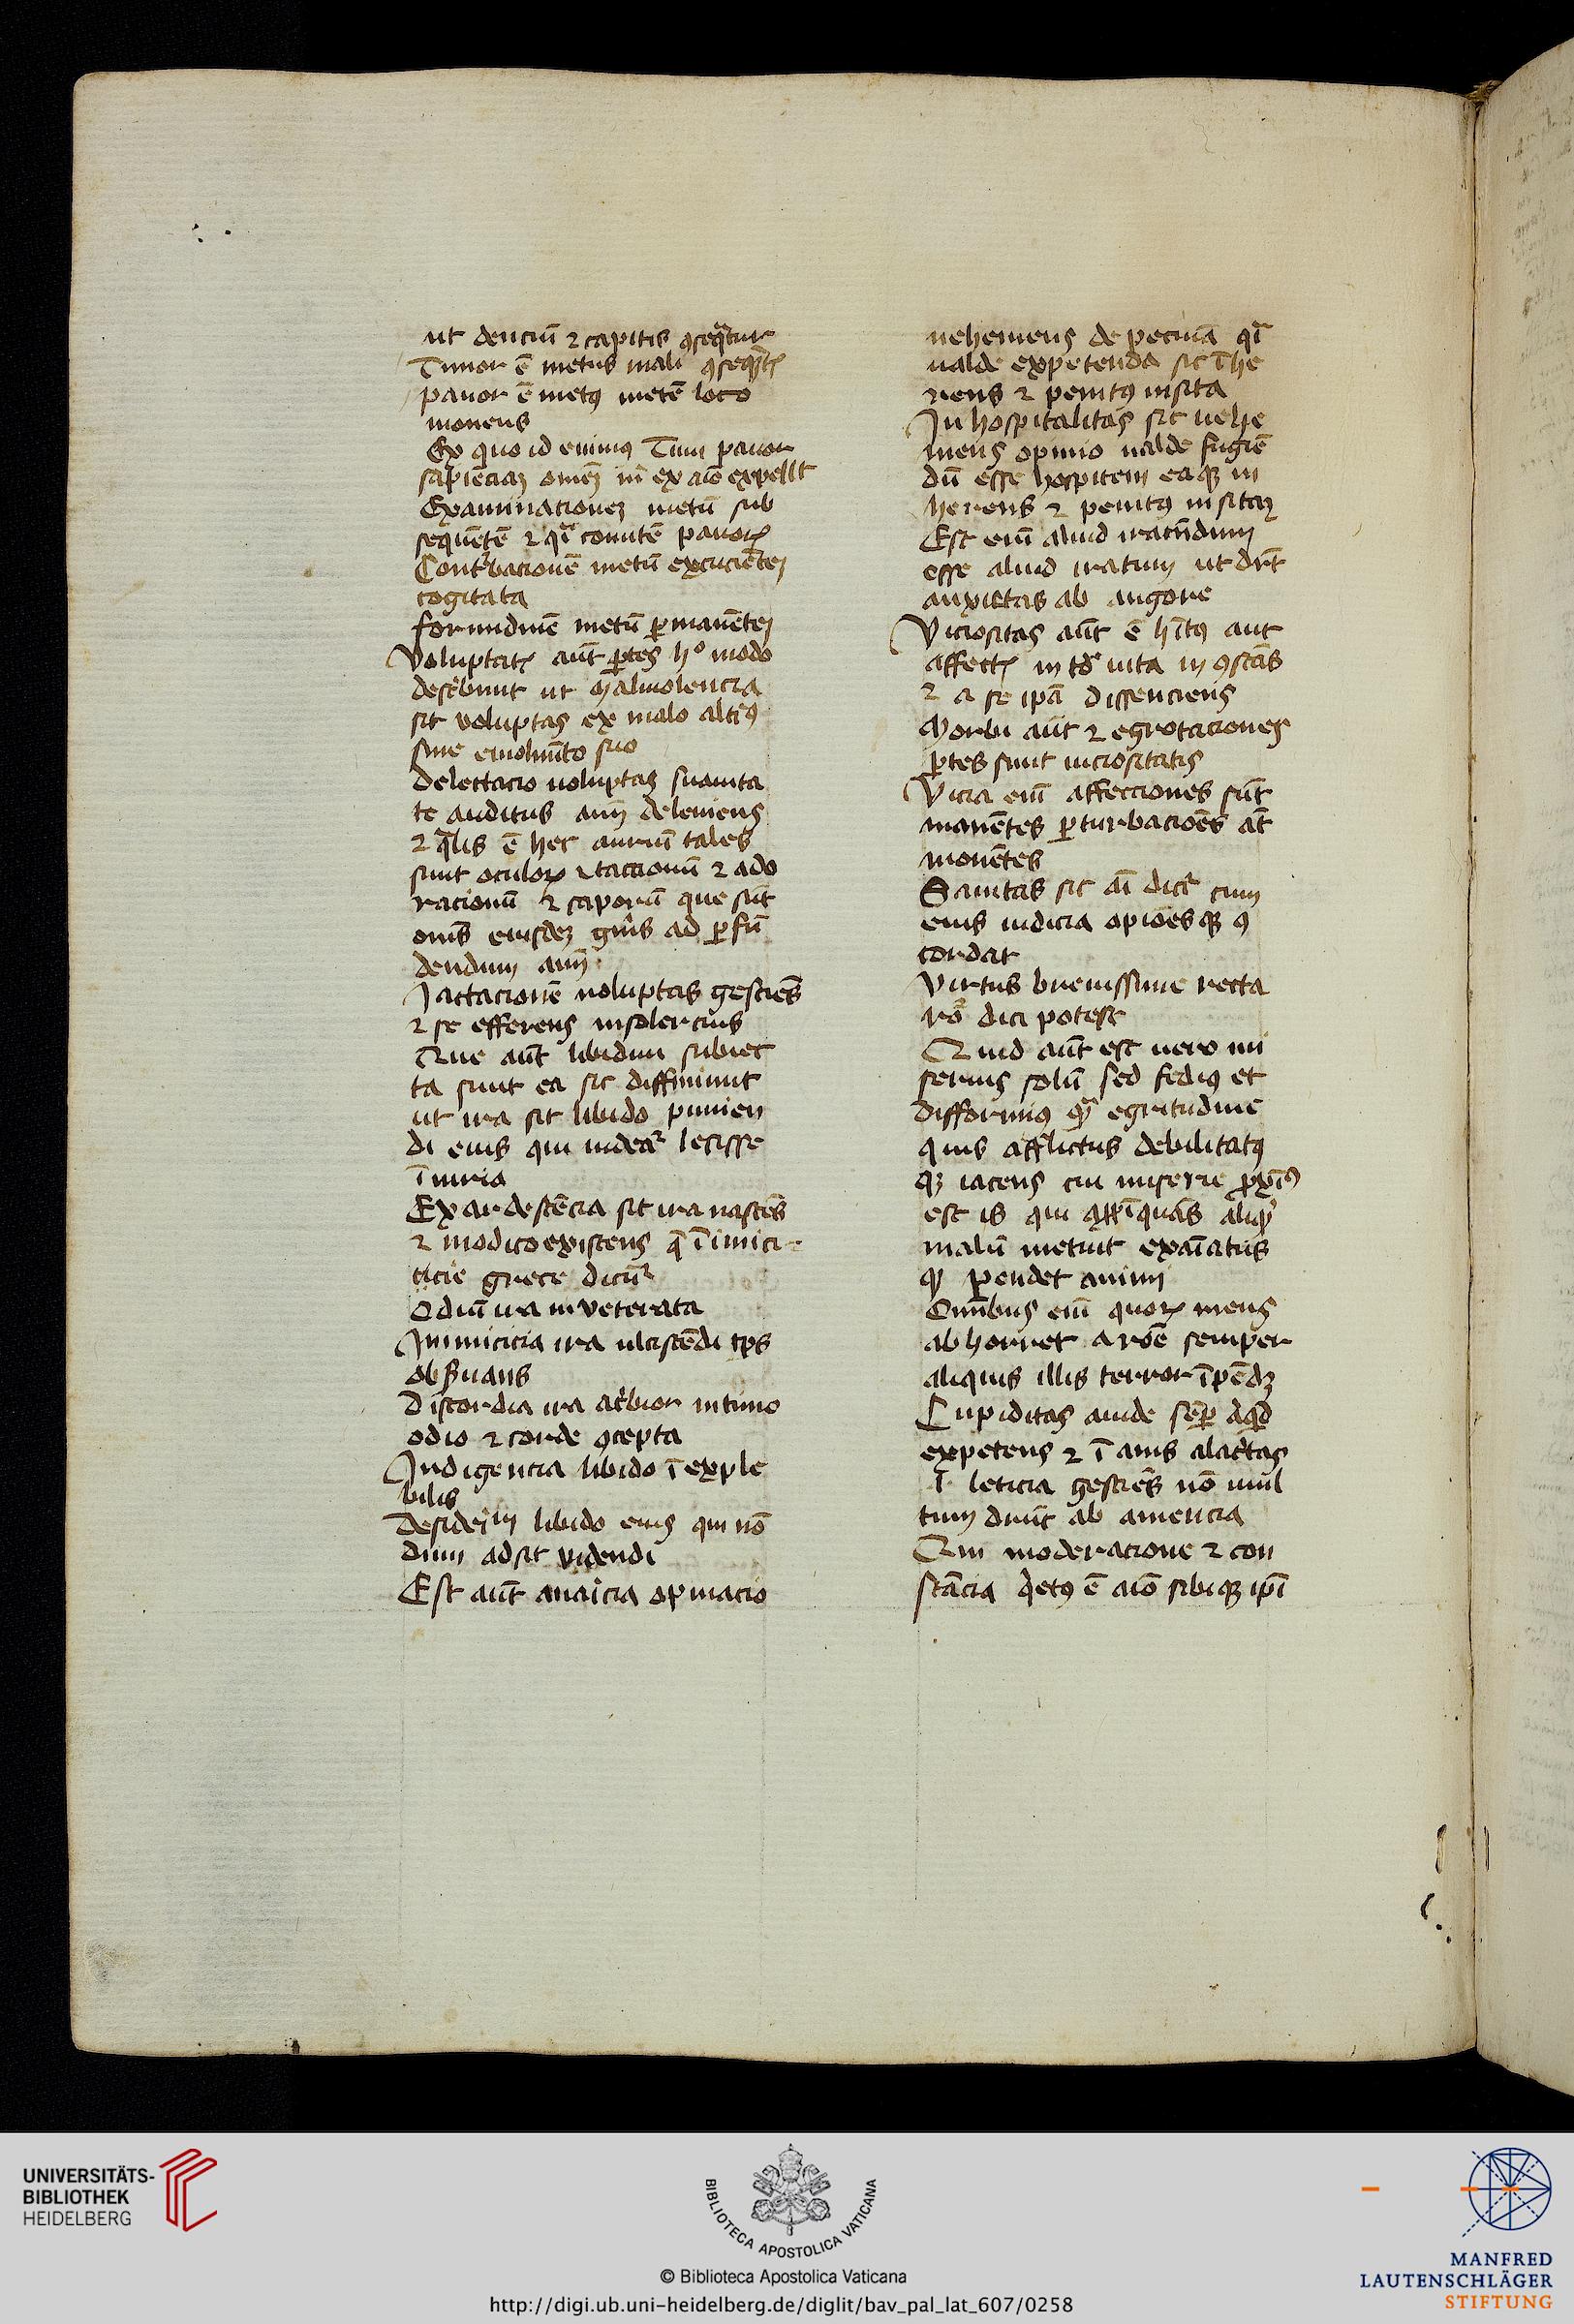 ut denciū ⁊ capitis ꝯseqͣtur
Timor ē metus mali ꝯseqͣtꝭ
pauor ē metꝰ mētē loco
mouens
Ex quo id enimꝰ Tum pauor
sapīenciaꝫ om̄eꝫ m̄ ex aīo expellt
Examinacioneꝫ metū sub
sequētē ⁊ qͣi comitē pauoꝝ
Cont͛bacionē metū excucientēꝫ
cogitata
formidinē metū ꝑmanētēꝫ
Voluptatꝭ aūt ꝑtes hͦ modo
desc͛bunt ut maliuolencia
sit voluptas ex malo alt͛iꝰ
sine emolimto suo
delectacio uoluptas suauita
te auditus aīm deleniens
⁊ qͣlis ē hec auriū tales
sunt oculoꝝ ⁊ taccionū ⁊ ado
racionū ⁊ saporū que sūt
om̄s eiusdeꝫ gn̄is ad ꝑfū
dendum aīm
Jactacionē uoluptas gesciēs
⁊ se efferens insolercius
Que aūt libidini subiec
ta sunt ea sic diffiniunt
ut ira sit libido punien
di eius qui uideat͛ lesisse
īiuria
Exardescēcia sit ira nascēs
⁊ modico existens
grece dicit͛
Odiū ira inveterata
Inimicicia ira ulciscēdi tp̄s
obẜuans
Discordia ira ac͛bior intimo
odio ⁊ corde ꝯcepta
Indigencia libido īexple
bilis
desideriū libido eius qui nō
dum adsit videndi
Est aūt auaricia opinacio
uehemens de pecūia qͣi
ualde expetenda sit īhe
rens ⁊ penitꝰ insita
Inhospitalitas sit uehe
mens opinio ualde fugiē
dū esse hospitem eaqꝫ in
herens ⁊ penitꝰ insitaꝫ
Est eīm aliud iracūdum
esse aliud iratum ut dr̄t
anxietas ab angore
Viciositas aūt ē hītꝰ aut
affectꝭ in tōͣ uita inꝯstās
⁊ a se ipā dissenciens
Morbi aūt ⁊ egrotaciones
ꝑtes sunt uiciositatis
Vicia eīm affecciones sūt
manētes ꝑturbacioēs āt
mouētes
Sanitas sit aī dict͛ cum
eius iudicia opioēsqꝫ ꝯ
cordāt
Virtus breuissime recta
rō dici potest
Quid aūt est uero mi
serius solū sed fediꝰ et
difformiꝰ qͣ egritudine
quis afflictus debilitatꝰ
qꝫ iacens cui miserie ꝓxīꝰ
est is qui aꝓpīquās aliqͩ
malū metuit exaīatus
qꝫ pendet animi
Om̄ibus eīm quoꝝ mens
abhorret a rōe semper
aliquis illis terror īpēdꝫ
Cupiditas auide sēꝑ aͥqͥd
expetens ⁊ īanis alac͛tas
.i. leticia gesciēs nō mul
tum diūt ab amencia
Qui moderacione ⁊ con
stācia qͥetꝰ ē aīo sibiqꝫ ip̄i
UNIVERSITÄTS-
BIBLIOTHEK
HEIDELBERG
BIBLIOTECA APOSTOLICA VATICANA
© Biblioteca Apostolica Vaticana
http://digi.ub.uni-heidelberg.de/diglit/bav_pal_lat_607/0258
MANFRED
LAUTENSCHLÄGER
STIFTUNG